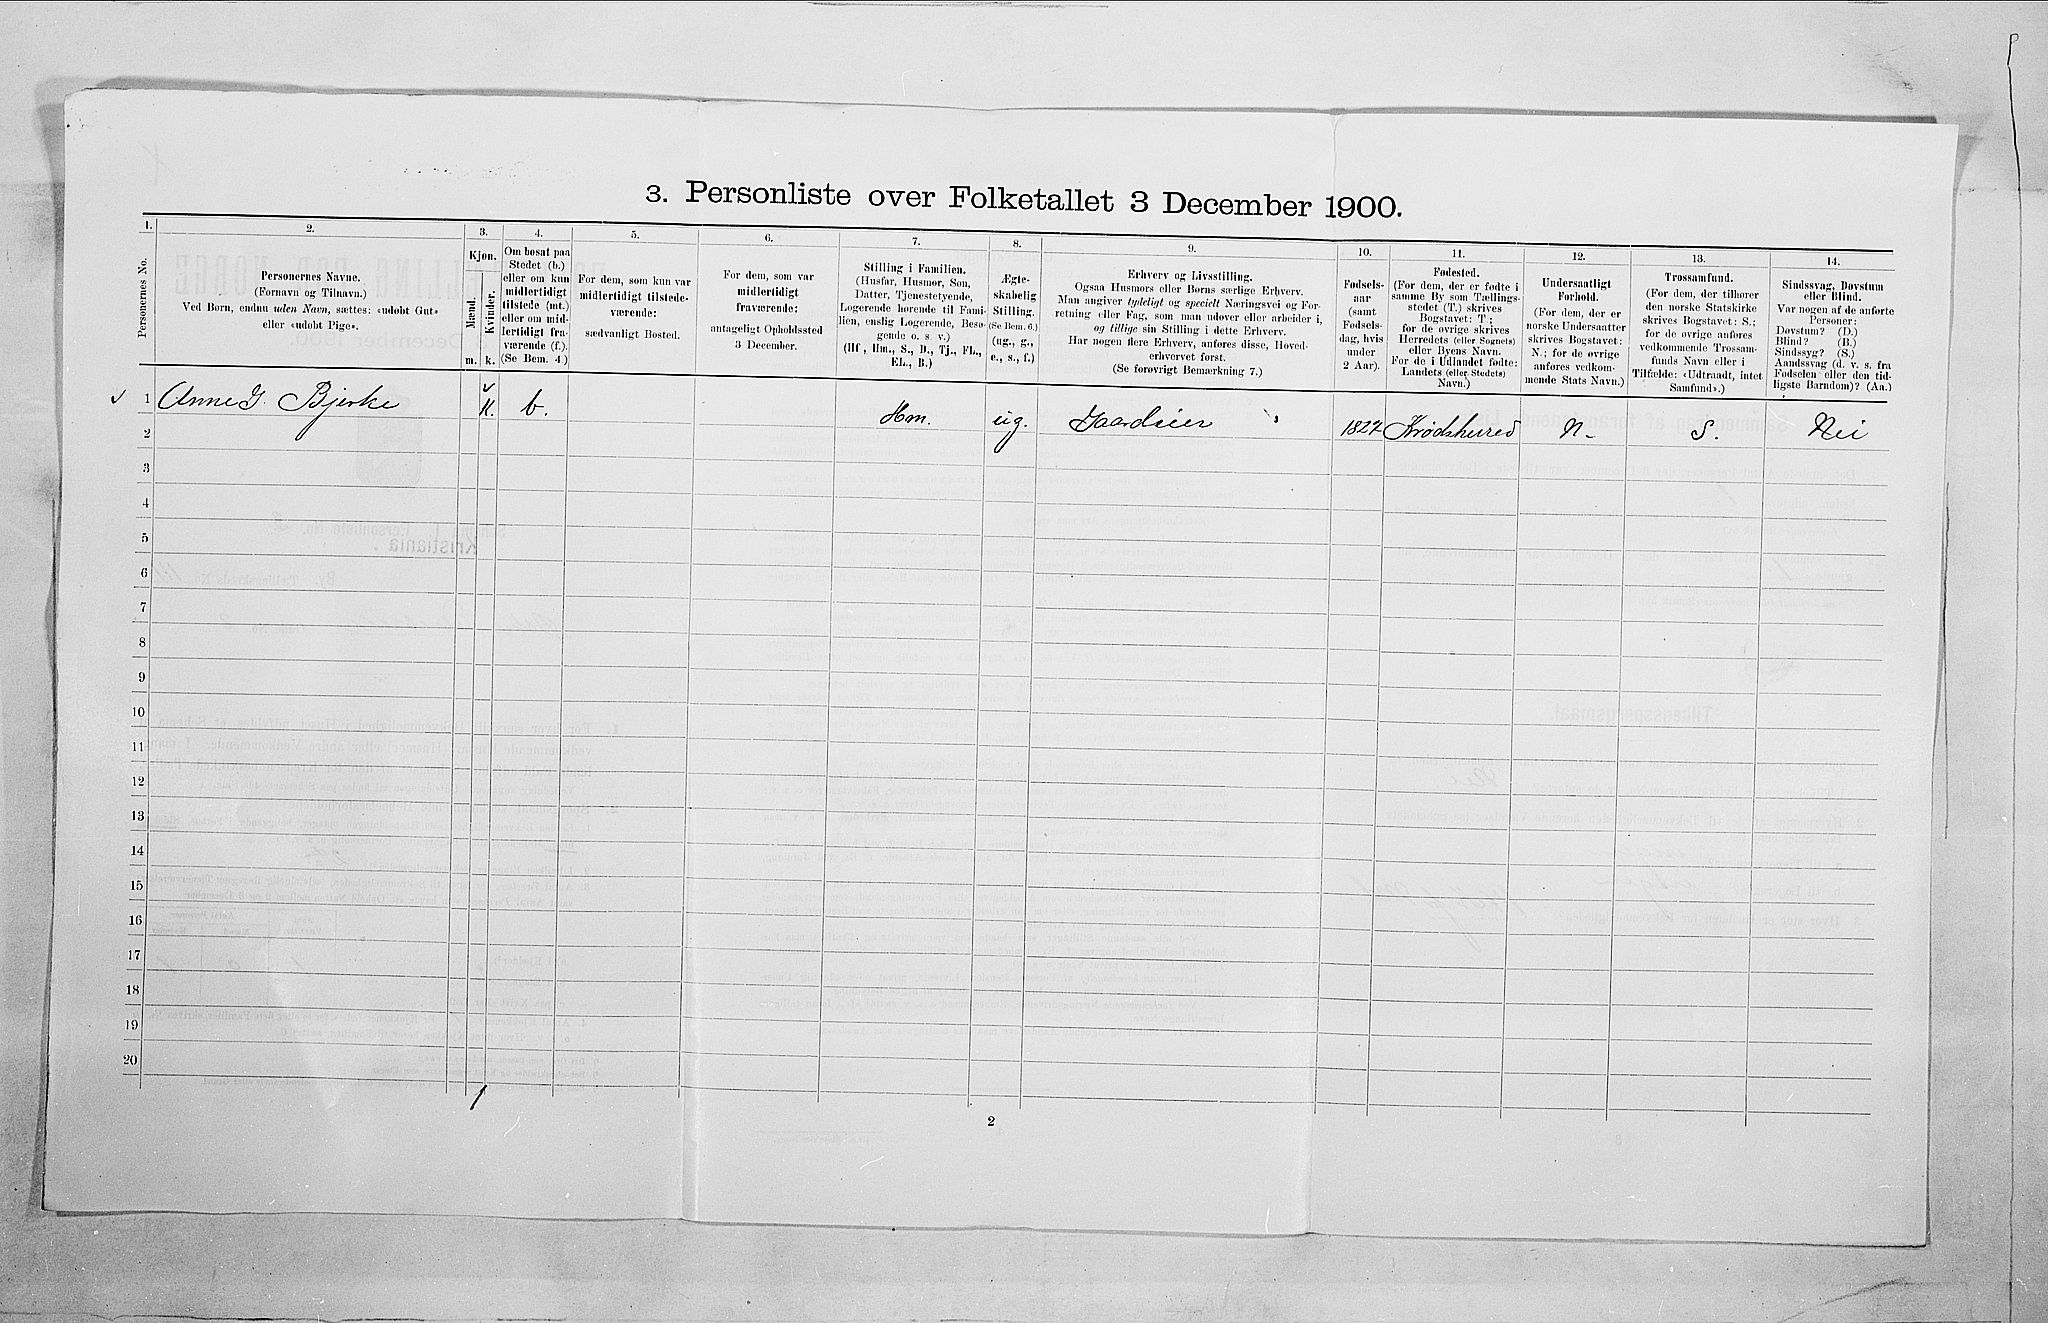 3. Personliste over Folketallet 3 December 1900.
1.
2.
3.
4.
5.
6.
7.
8.
9.
10.
11.
12.
13.
14.
Personernes No.
Personernes Navne.
(Fornavn og Tilnavn.)
Ved Børn, endnu uden Navn, sættes: «udøbt Gut»
eller «udøbt Pige».
Kjøn.
Mænd.
Kvinder.
m.
k.
Om bosat paa
Stedet (b.)
eller om kun
midlertidigt
tilstede (mt.)
eller om mid-
lertidigt fra-
værende (f.).
(Se Bem. 4.)
For dem, som kun var
midlertidigt tilstede-
værende:
sædvanligt Bosted.
For dem, som var
midlertidigt
fraværende:
antageligt Opholdssted
3 December.
Stilling i Familien.
(Husfar, Husmor, Søn,
Datter, Tjenestetyende,
Logerende hørende til Fami-
lien, enslig Logerende, Besø-
gende o. s. v.)
(Hf., Hm., S., D., Tj., FL.,
EL., B.)
Ægte-
skabelig
Stilling.
(Se Bem. 6.)
(ug., g.,
e., s., f.)
Erhverv og Livsstilling.
Ogsaa Husmors eller Børns særlige Erhverv.
Man angiver tydeligt og specielt Næringsvei og For-
retning eller Fag, som man udøver eller arbeider i,
og tillige sin Stilling i dette Erhverv.
Har nogen flere Erhverv, anføres disse, Hoved-
erhvervet først.
(Se forøvrigt Bemærkning 7.)
Fødsels-
aar
(samt
Fødsels-
dag, hvis
under
2 Aar).
Fødested.
(For dem, der er fødte i
samme By som Tællings-
stedet (T.) skrives
Bogstavet: T;
for de øvrige skrives
Herredets (eller Sognets)
eller Byens Navn.
For de i Udlandet fødte:
Landets (eller Stedets)
Navn.)
Undersaatligt
Forhold.
(For dem, der er
norske Undersaatter
skrives Bogstavet:
N.; for de øvrige
anføres vedkom-
mende Stats Navn.)
Trossamfund.
(For dem, der tilhører
den norske Statskirke
skrives Bogstavet: S.;
for de øvrige anføres
vedkommende Trossam-
funds Navn eller i
Tilfælde: «Udtraadt, intet
Samfund».)
Sindssvag, Døvstum
eller Blind.
Var nogen af de anførte
Personer:
Døvstum? (D.)
Blind? (B.)
Sindssyg? (S.)
Aandssvag (d. v. s. fra
Fødselen eller den tid-
ligste Barndom)? (Aa.)
1 Anne G. Bjerke k. b. Hm. ug. Gaardeier 1827 Krødshered N. S. Nei
2
3
4
5
6
7
8
9
10
11
12
13
14
15
16
17
18
19
20
1
2